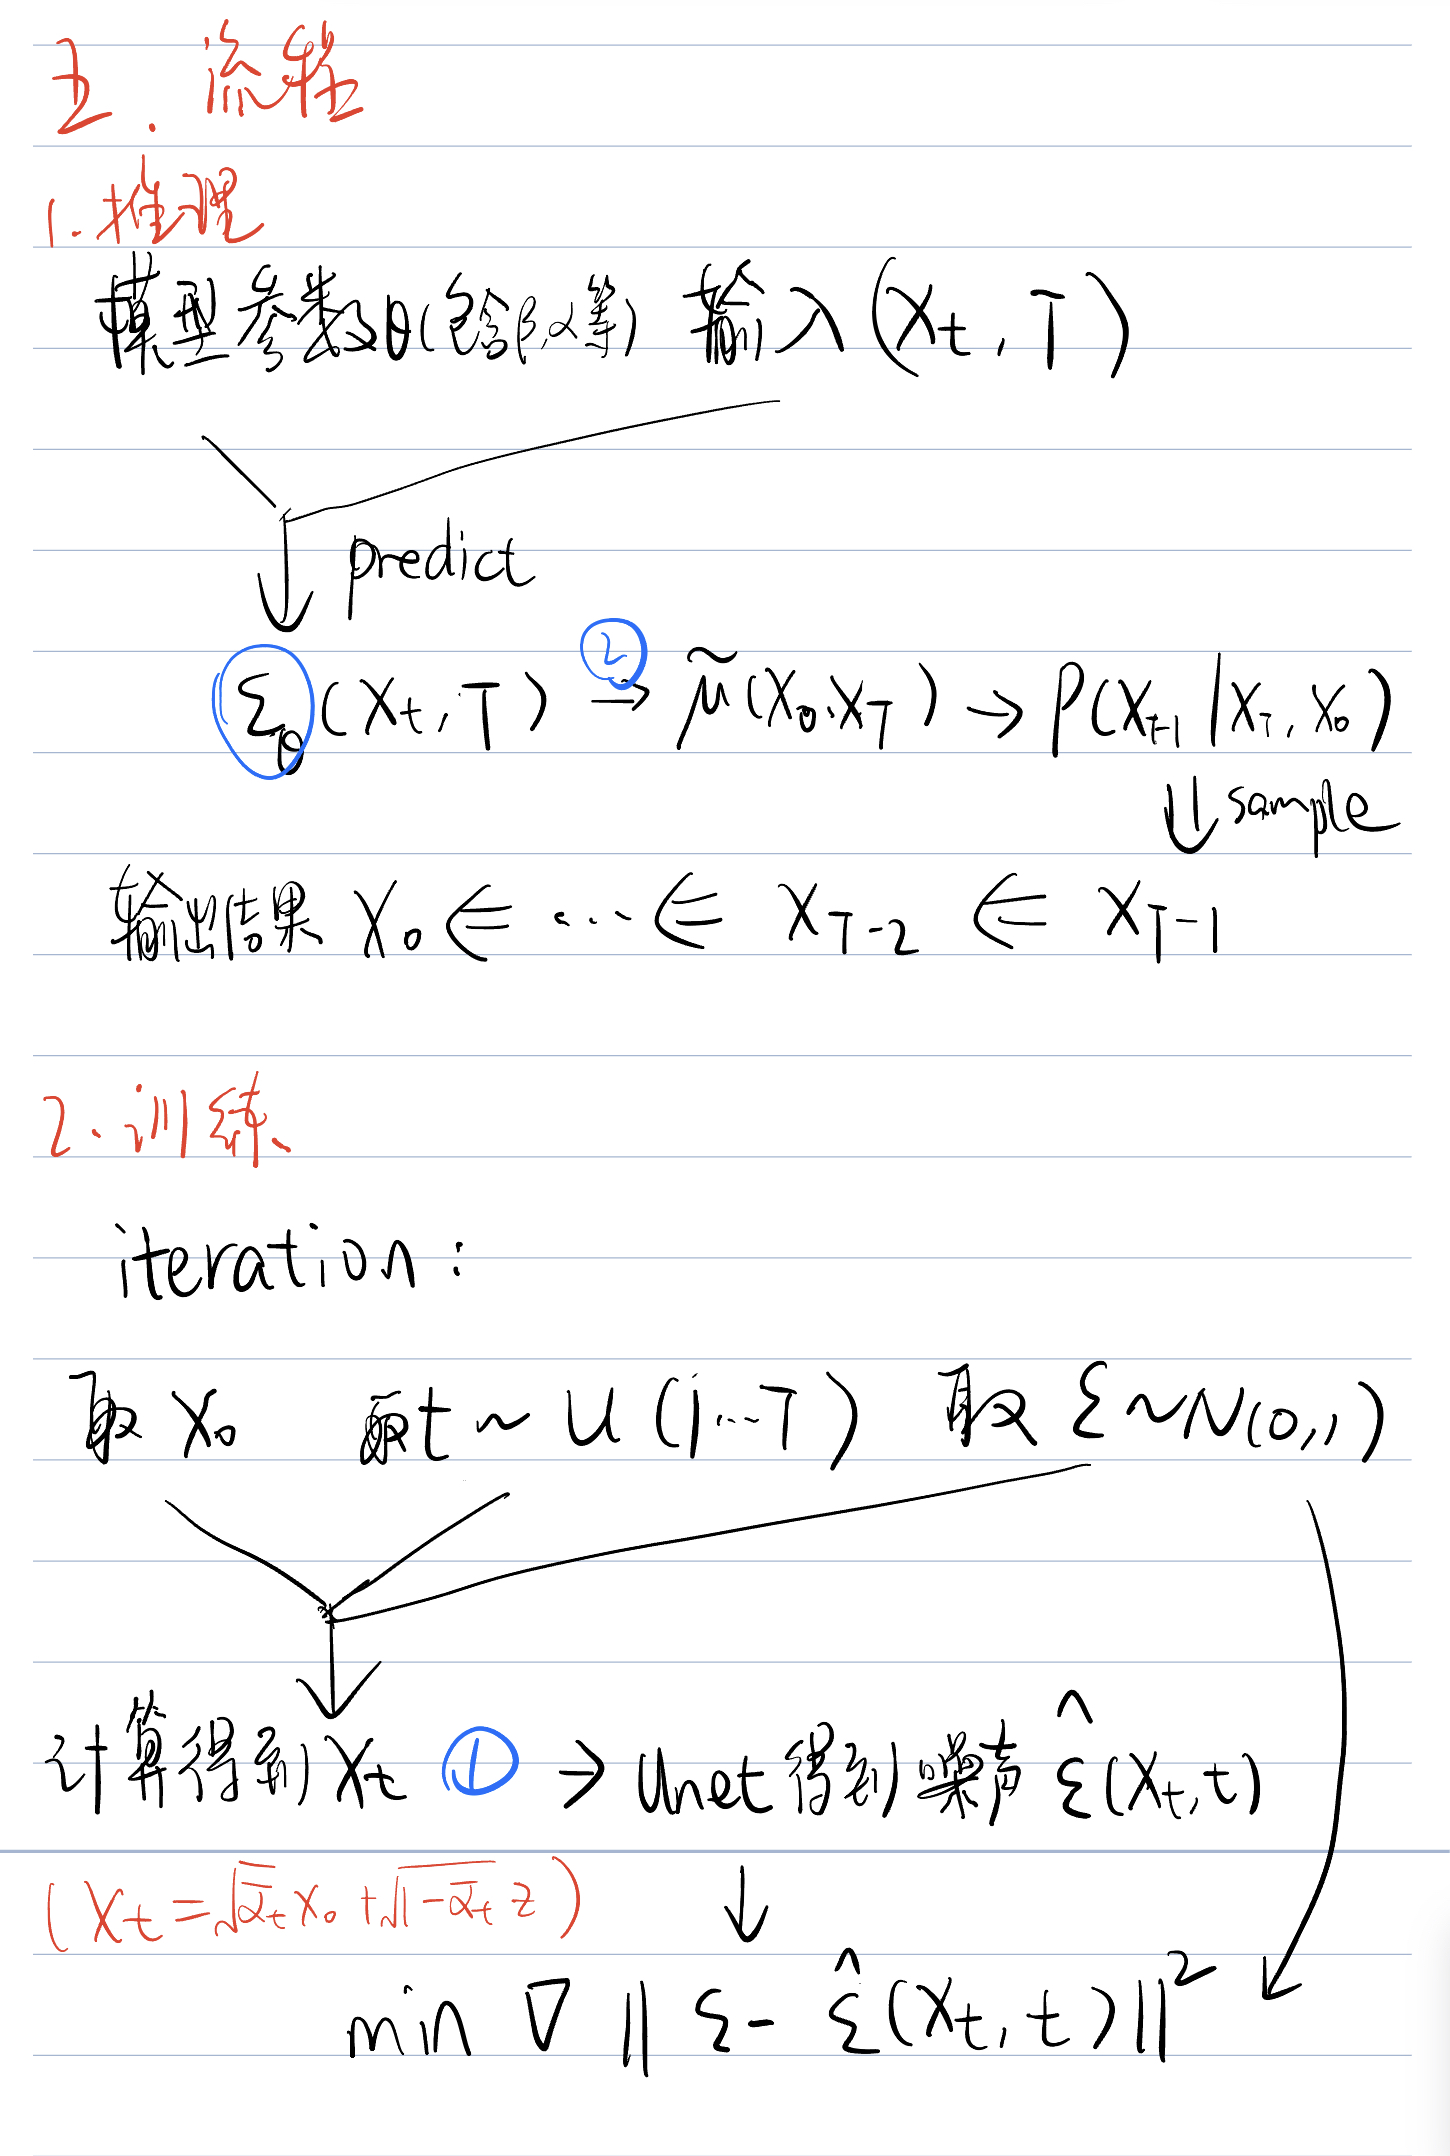 五. 流程
1. 推理
模型参数θ(包含β,α等) 输入(Xt, T)
predict
Σθ(Xt, T) ② → μ̃(X0, XT) → P(Xt-1 | XT, X0)
sample
输出结果 X0 ⇐ ... ⇐ XT-2 ⇐ XT-1
2. 训练
iteration:
取 X0 取t ~ U(1...T) 取 Σ ~ N(0,1)
计算得到Xt ① → Unet得到噪声 Σ̂(Xt, t)
(Xt = √ᾱt X0 + √1-ᾱt z)
min ∇ || Σ - Σ̂(Xt, t) ||²